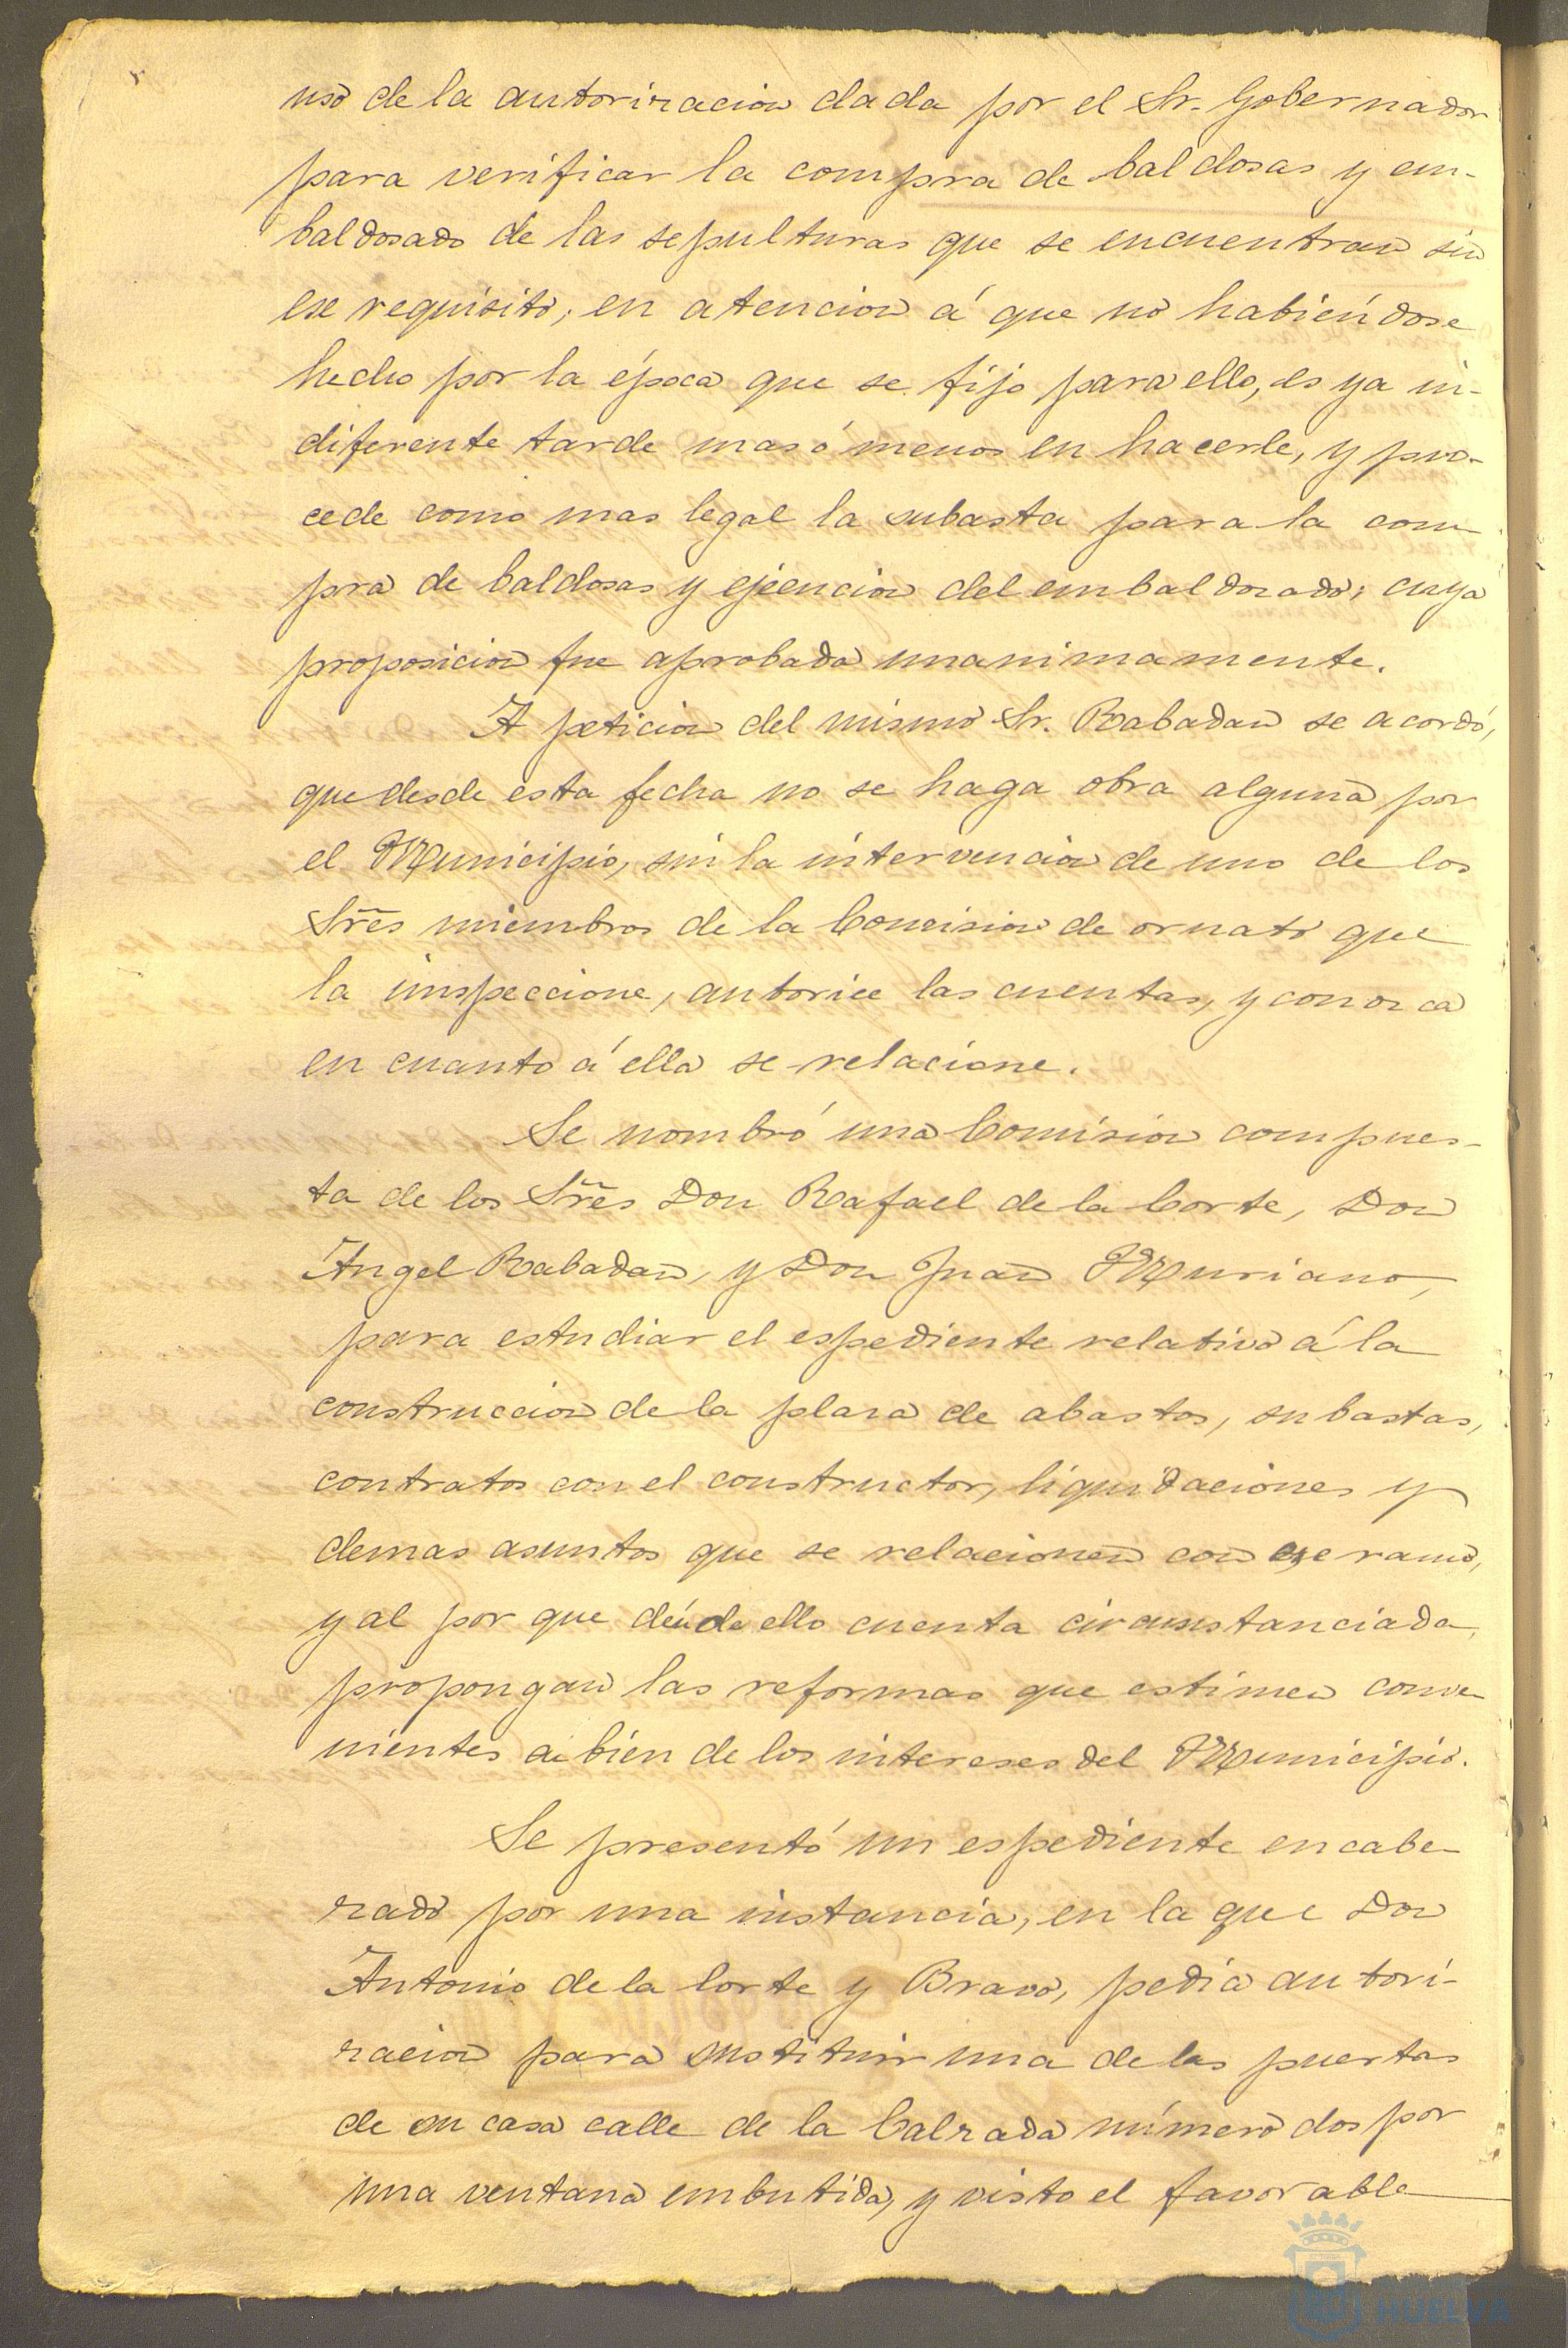 uso de la autorizacion dada por el Sr. Gobernador
para verificar la compra de baldosas y em-
baldosado de las sepulturas que se encuentran sin
ese requisito; en atencion á que no habiéndose
hecho por la época que se fijo para ello, es ya in-
diferente tarde mas ó menos en hacerle, y pro-
cede como mas legal la subasta para la com-
pra de baldosas y ejecucion del embaldosado; cuya
proposicion fue aprobada unanimamente.
A peticion del mismo Sr. Rabadan se acordó,
que desde esta fecha no se haga obra alguna por
el Municipio, sin la intervencion de uno de los
Sres miembros de la Comision de ornato que
la inspeccione, autorice las cuentas, y conozca
en cuanto á ella se relacione.
Se nombró una Comision compues-
ta de los Sres Don Rafael de la Corte, Don
Angel Rabadan, y Don Juan Muriano,
para estudiar el espediente relativo á la
construccion de la plaza de abastos, subastas,
contratos con el constructor, liquidaciones y
demas asuntos que se relacionen con ese ramo,
y al por que dén de ello cuenta circunstanciada,
propongan las reformas que estimen conve-
nientes a bien de los intereses del Municipio.
Se presentó un espediente encabe-
zado por una instancia, en la que Don
Antonio de la Corte y Bravo, pedia autori-
zacion para sustituir una de las puertas
de su casa calle de la Calzada número dos por
una ventana embutida, y visto el favorable
HUELVA